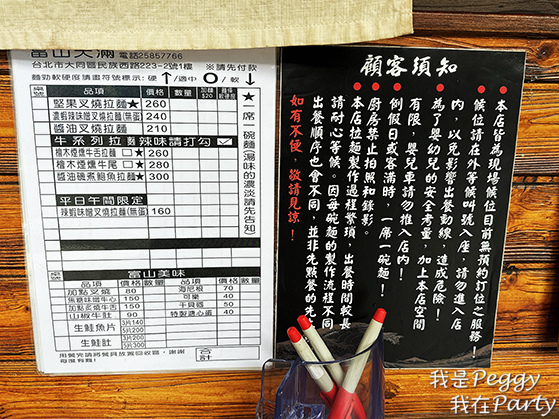 富山英滿 電話25857766
台北市大同區民族西路223-2號1樓 ※請先付款
麵勁軟硬度請畫符號標示:硬↑/適中○/軟↓
品項 價格 數量 加麵$20 麵硬軟度
堅果叉燒拉麵★ 260
濃蝦辣味噌叉燒拉麵(無蛋) 240
醬油叉燒拉麵 210
牛系列拉麵 辣味請打勾 ✓
檜木煙燻牛舌拉麵□★ 260
檜木煙燻牛尾□★ 260
醬油磯煮鮑魚拉麵★ 300
平日午間限定
辣蝦味噌叉燒拉麵(無蛋) 160
★一席一碗麵
湯味的濃淡請先告知
富山美味
品項 價格 數量 品項 價格 數量
加點叉燒 80 海尼根 70
焦糖味噌牛心 150 可樂 40
加點炙燒牛舌 150 干貝醬 50
山椒牛肚 90 特製溏心蛋 40
生鮭魚片 3片140 5片200
生鮭肚 3片220 5片320
用餐完請將餐具放置回收區,謝謝
每度有難!
合計
顧客須知
●本店皆為現場候位目前無預約訂位之服務!
●候位請在外等候叫號入座,請勿進入店
內,以免影響出餐動線,造成危險!
●為了嬰幼兒的安全考量,加上本店空間
有限,嬰兒車請勿推入店內!
●例假日或客滿時,一席一碗麵!
●廚房禁止拍照和錄影。
●本店拉麵製作過程繁瑣,出餐時間較長
請耐心等候。因每碗麵的製作流程不同
出餐順序也會不同,並非先點餐的先
如有不便,敬請見諒!
我是Peggy
我在Party